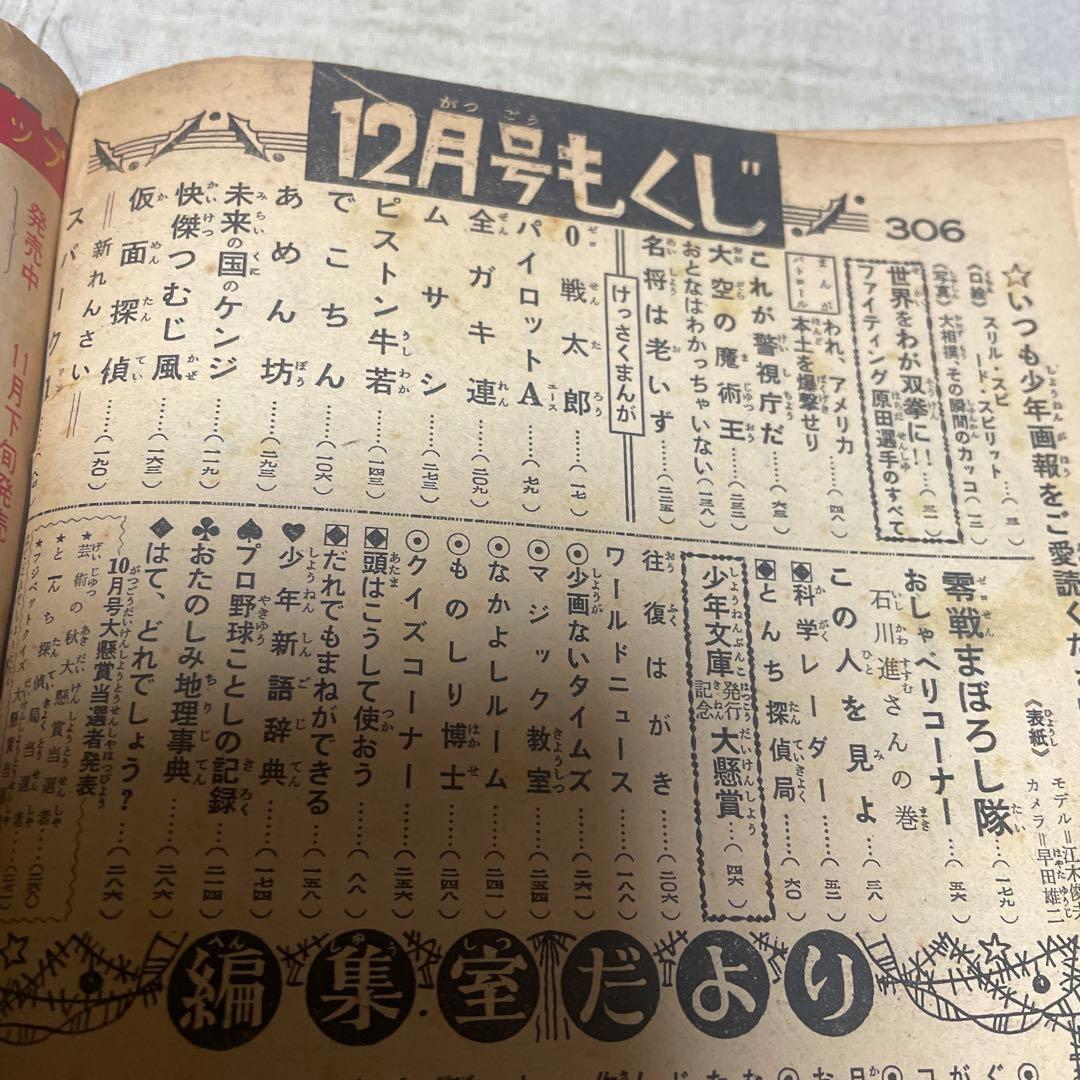 12月号もくじ
306
☆いつも少年画報をご愛読くだ
《口絵》スリル・スピ
ード・スピリット…(三)
《写真》大相撲、その瞬間のカッコ(一二)
世界をわが双拳に!!…(三一)
ファイティング原田選手のすべて
まんが
パトロール
われ、アメリカ
本土を爆撃せり……(四八)
これが警視庁だ……(六三)
大空の魔術王……(二三二)
おとなはわかっちゃいない(一三八)
名将は老いず……(二三五)
けっさくまんが
0戦太郎……(一七)
パイロットA……(七九)
全ガキ連……(二〇九)
ムサシ……(二七三)
ピストン牛若……(一四三)
でこちん……(一〇六)
あめん坊……(二九三)
未来の国のケンジ……(一一九)
快傑つむじ風……(一六三)
仮面探偵……(一九〇)
＝新れんさい＝
スパーク1
零戦まぼろし隊……(一七九)
おしゃべりコーナー……(五六)
石川進さんの巻
この人を見よ……(三八)
◆科学レーダー……(一四四)
◆とんち探偵局……(六〇)
少年文庫発行記念大懸賞……(四六)
往復はがき……(二〇六)
ワールドニュース……(一八八)
◉少画ないタイムズ……(二六一)
◉マジック教室……(二五四)
◉なかよしルーム……(二四四)
◉ものしり博士……(二四八)
◉クイズコーナー……(二五六)
◆頭はこうして使おう……(八八)
◆だれでもまねができる……(一五八)
♥少年新語辞典……(一七四)
♠プロ野球ことしの記録……(二一一)
♣おたのしみ地理事典……(二二六)
◆はて、どれでしょう?……(二八六)
10月号大懸賞当選者発表
★芸術の秋大懸賞当選者
★とんち探偵局当選者
編集室だより
《表紙》
モデル＝江木俊夫
カメラ＝早田雄二
ップ
発売中
11月下旬発売